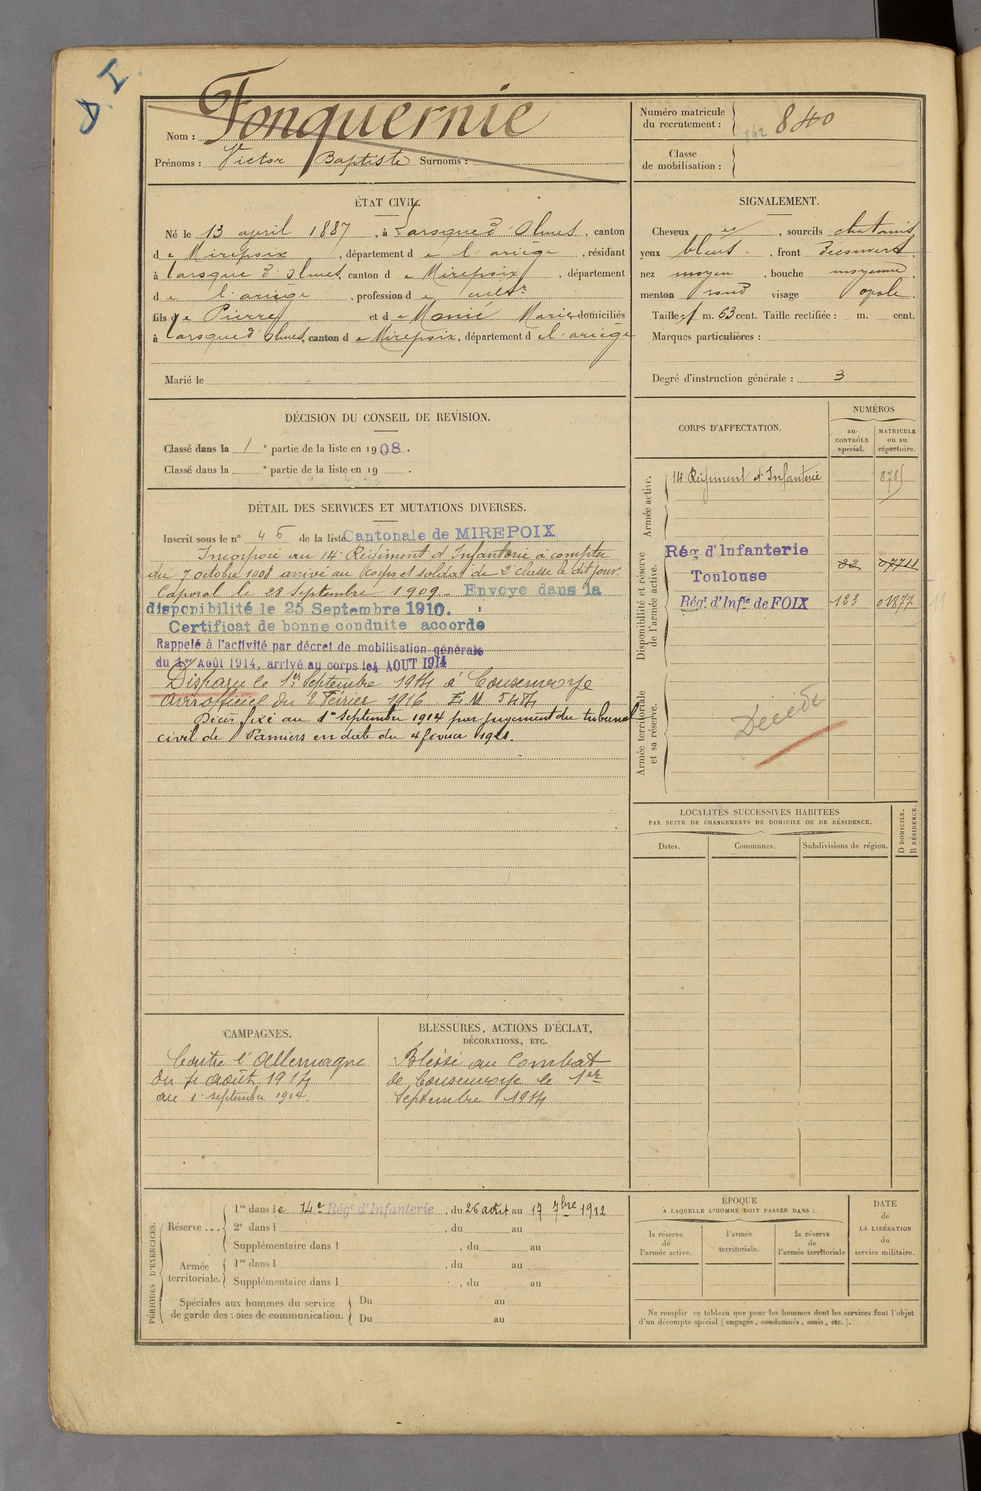 Nom : Fonquernie
Prénoms : Victor Baptiste Surnoms :
Numéro matricule du recrutement : 840
842
Classe de mobilisation :
ÉTAT CIVIL.
Né le 13 april 1887, à Larsque d'Olmes, canton
de Mirepoix, département de l'ariège, résidant
à Larsque d'Olmes, canton de Mirepoix, département
de l'ariège, profession de cultr
fils de Pierre et de Marie domiciliés
à Larsque d'Olmes, canton de Mirepoix, département de l'ariège
Marié le
SIGNALEMENT.
Cheveux et, sourcils chatains
yeux bleus, front Découvert,
nez moyen, bouche moyenne,
menton rond visage ovale.
Taille : 1 m. 63 cent. Taille rectifiée : m. cent.
Marques particulières :
Degré d'instruction générale : 3
DÉCISION DU CONSEIL DE REVISION.
Classé dans la 1e partie de la liste en 1908.
Classé dans la e partie de la liste en 19 .
CORPS D'AFFECTATION.
NUMÉROS
au CONTRÔLE spécial.
MATRICULE ou au répertoire.
Armée active.
14 Régiment d'Infanterie 8785
Disponibilité et réserve de l'armée active.
Rég d'Infanterie
Toulouse
Régt d'Infie de FOIX 123 01877
Armée territoriale et sa réserve.
Décédé
DÉTAIL DES SERVICES ET MUTATIONS DIVERSES.
Inscrit sous le n° 46 de la liste Cantonale de MIREPOIX
Incorporé au 14 Régiment d'Infanterie à compter
du 7 octobre 1908 arrivé au Corps et soldat de 2e classe le dit jour.
Caporal le 28 Septembre 1909. Envoyé dans la
disponibilité le 25 Septembre 1910.
Certificat de bonne conduite accordé
Rappelé à l'activité par décret de mobilisation générale
du 1er Août 1914, arrivé au corps le 4 AOUT 1914
Disparu le 1er Septembre 1914 à Consenvoye
avis officiel du 2 Février 1916
Décès fixé au 1er Septembre 1914 par jugement du tribunal
civil de Pamiers en date du 4 février 1921.
LOCALITÉS SUCCESSIVES HABITÉES
PAR SUITE DE CHANGEMENTS DE DOMICILE OU DE RÉSIDENCE.
Dates.
Communes.
Subdivisions de région.
D DOMICILE.
R RÉSIDENCE.
CAMPAGNES.
Contre l'Allemagne
du 4 août 1914
au 1 septembre 1914.
BLESSURES, ACTIONS D'ÉCLAT,
DÉCORATIONS, ETC.
Blessé au Combat
de Consenvoye le 1er
Septembre 1914
PÉRIODES D'EXERCICES.
Réserve ...
1re dans le 14e Régt d'Infanterie, du 26 août au 17 7bre 1912
2e dans l , du au
Supplémentaire dans l , du au
Armée territoriale.
1re dans l , du au
Supplémentaire dans l , du au
Spéciales aux hommes du service
de garde des voies de communication.
Du au
Du au
EPOQUE
À LAQUELLE L'HOMME DOIT PASSER DANS :
la réserve de l'armée active.
l'armée territoriale.
la réserve de l'armée territoriale
DATE
de
LA LIBÉRATION
du
service militaire.
Ne remplir ce tableau que pour les hommes dont les services font l'objet
d'un décompte spécial (engagés, condamnés, omis, etc.).